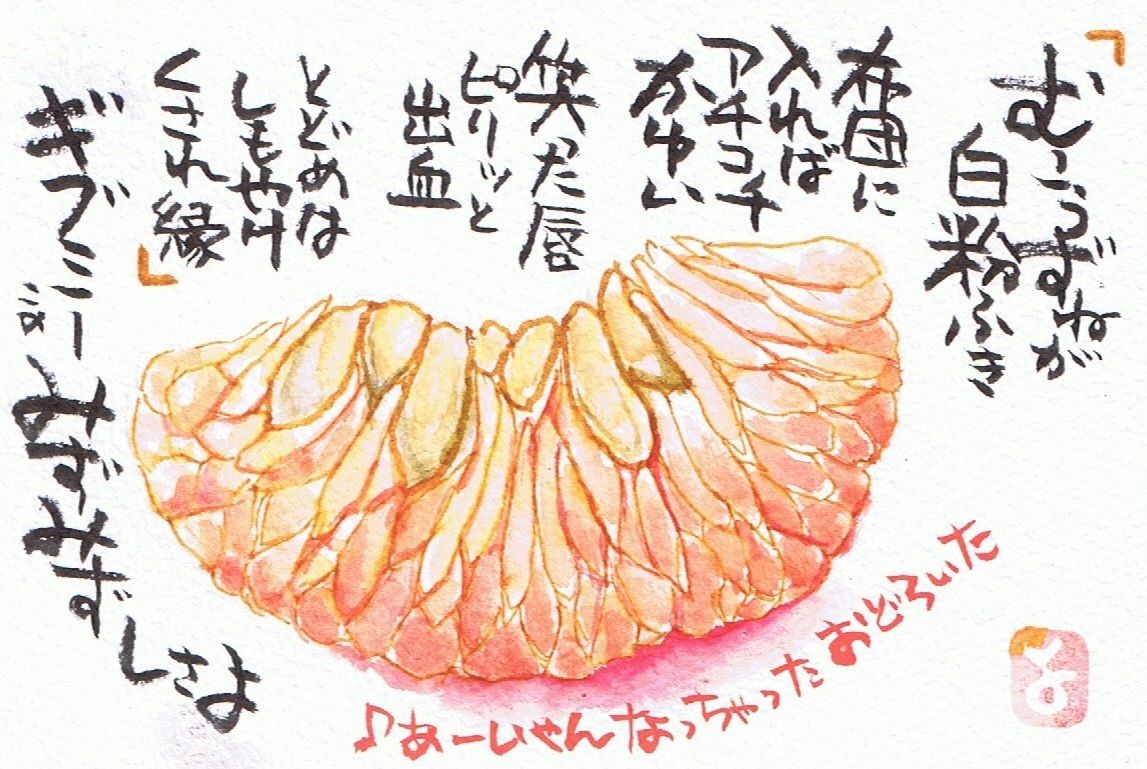 「むこうずねが
白粉ふき
布団に
入れば
アチコチ
かゆい
笑った唇
ピリッと
出血
とどめは
しもやけ
くされ縁」
ギブミーみずみずしさよ
♪あーいやんなっちゃったおどろいた